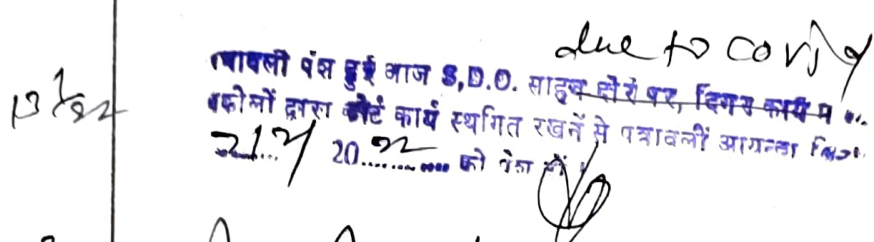 due to covid
पत्रावली पेश हुई आज S.D.O. साहब दौरे पर, दिगर कार्य में
वकीलों द्वारा कोर्ट कार्य स्थगित रखनें से पत्रावलीं आयन्दा
20....22.... को पेश हो